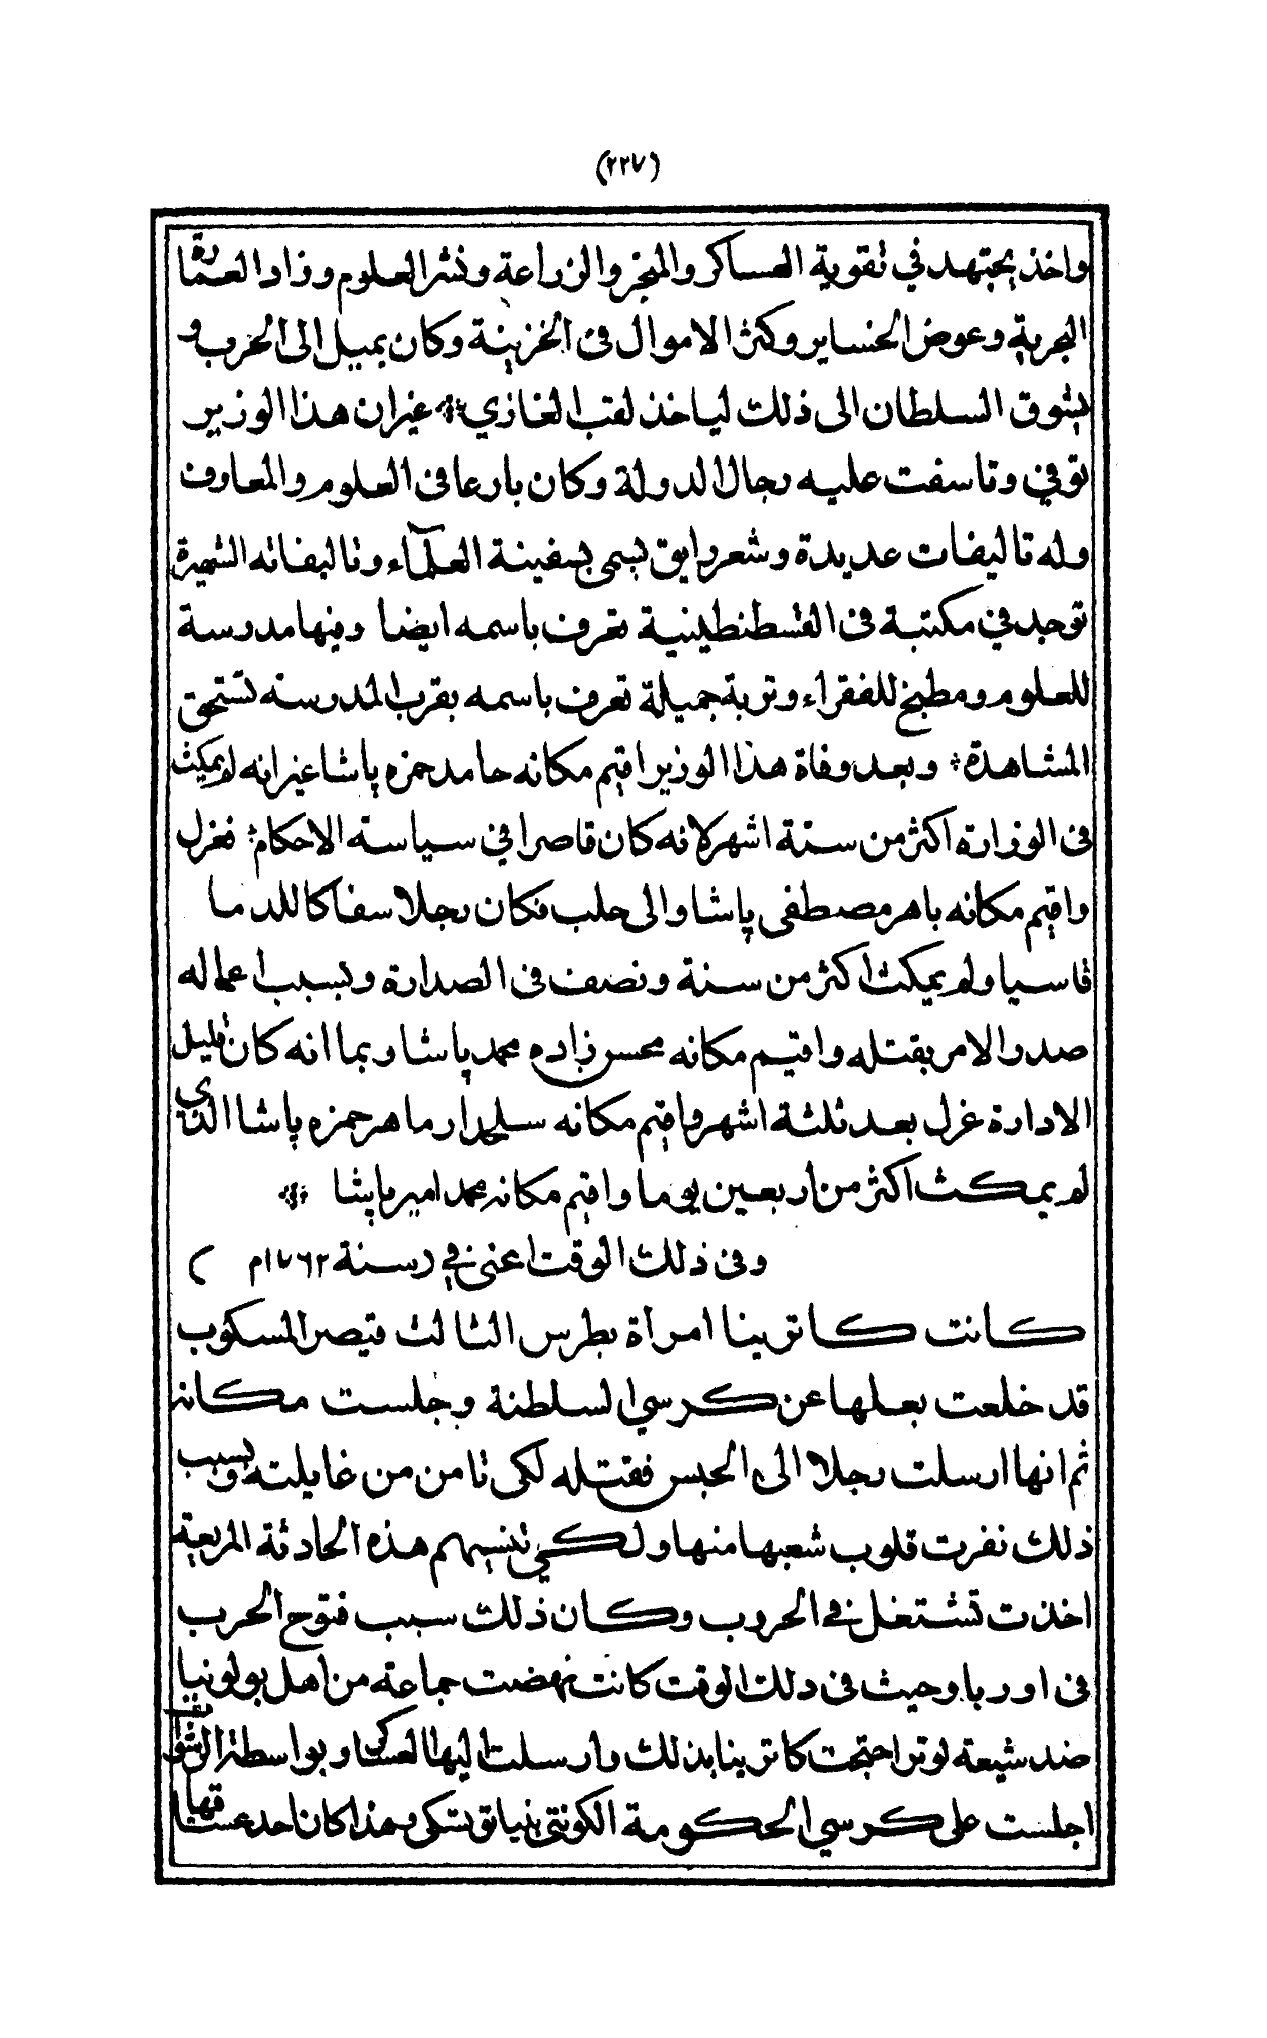 (٢٢٧)
واخذ يجتهد في تقوية العساكر والمتجر والزراعة ونشر العلوم وزاد العمارة
البحرية وعوض الخساير وكثر الاموال في الخزينة وكان يميل الى الحرب و
يشوق السلطان الى ذلك لياخذ لقب الغازي غير ان هذا الوزير
توفي وتاسفت عليه رجال الدولة وكان بارعا في العلوم والمعارف
وله تاليفات عديدة وشعر رايق يسمى بسفينة العلمآء وتاليفاته الشهيرة
توجد في مكتبة في القسطنطينية تعرف باسمه ايضا وفيها مدرسة
للعلوم ومطبخ للفقراء وتربة جميلة تعرف باسمه بقرب المدرسة تستحق
المشاهدة وبعد وفاة هذا الوزير اقيم مكانه حامد حمزه پاشا غير انه لم يمكث
في الوزارة اكثر من سنة اشهر لانه كان قاصرا في سياسة الاحكام فعزل
واقيم مكانه باهر مصطفى پاشا والى حلب فكان رجلا سفاكا للدما
قاسيا ولم يمكث اكثر من سنة ونصف في الصدارة وبسبب اعماله
صدر الامر بقتله واقيم مكانه محسن زاده محمد پاشا وبما انه كان قليل
الادارة عزل بعد ثلثة اشهر واقيم مكانه سلحدار ماهر حمزه پاشا الذي
لم يمكث اكثر من اربعين يوما واقيم مكانه محمد امير پاشا
وفي ذلك الوقت اعني في (سنة ١٧٦٢م)
كانت كاترينا امراة بطرس الثالث قيصر المسكوب
قد خلعت بعلها عن كرسي السلطنة وجلست مكانه
ثم انها ارسلت رجلا الى الحبس فقتله لكى تامن من غايلته وبسبب
ذلك نفرت قلوب شعبها منها ولكي تنسيهم هذه الحادثة المريعة
اخذت تشتغل في الحروب وكان ذلك سبب فتوح الحرب
في اوربا وحيث في ذلك الوقت كانت نهضت جماعة من اهل بولونيا
ضد شيعة لوتر احتجت كاترينا بذلك وارسلت اليها العساكر وبواسطة
اجلست على كرسي الحكومة الكونتي وهذا كان احد عشاقها